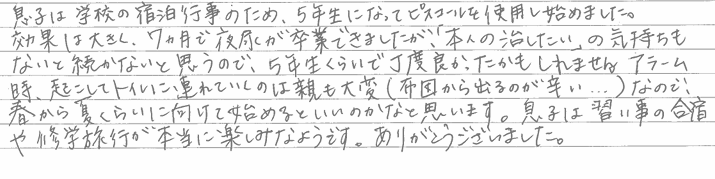 息子は学校の宿泊行事のため、5年生になってピスコールを使用し始めました。
効果は大きく、7ヵ月で夜尿が卒業できましたが、「本人の治したい」の気持ちも
ないと続かないと思うので、5年生くらいで丁度良かったかもしれません。アラーム
時、起こしてトイレに連れていくのは親も大変(布団から出るのが辛い…)なので、
春から夏くらいに向けて始めるといいのかなと思います。息子は習い事の合宿
や修学旅行が本当に楽しみなようです。ありがとうございました。